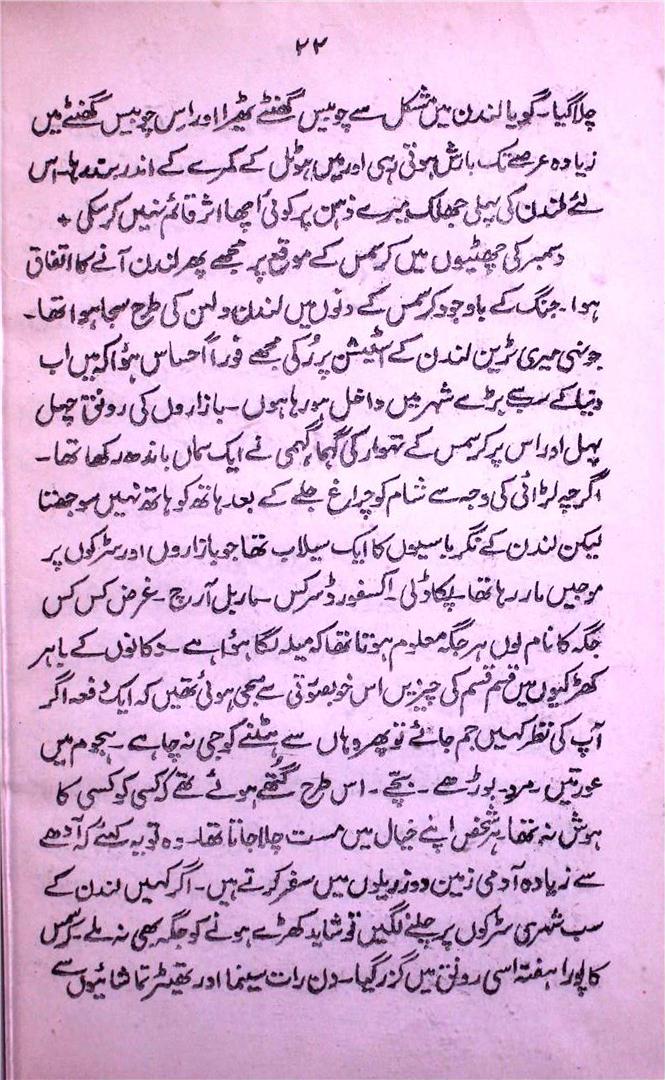 ۲۲
چلا گیا۔ گویا لندن میں مشکل سے چوبیس گھنٹے ٹھیرا اور اِس چوبیس گھنٹے میں
زیادہ عرصے تک بارش ہوتی رہی اور میں ہوٹل کے کمرے کے اندر بند رہا۔ اس
لئے لندن کی پہلی جھلک میرے ذہن پر کوئی اچھا اثر قائم نہیں کر سکی +
دسمبر کی چھٹیوں میں کرسمس کے موقع پر مجھے پھر لندن آنے کا اتفاق
ہوا۔ جنگ کے باوجود کرسمس کے دنوں میں لندن دلہن کی طرح سجا ہوا تھا۔
جونہی میری ٹرین لندن کے اسٹیشن پر رُکی مجھے فوراً احساس ہؤا کہ میں اب
دنیا کے سب سے بڑے شہر میں داخل ہو رہا ہوں۔ بازاروں کی رونق چہل
پہل اور اس پر کرسمس کے تہوار کی گہما گہمی نے ایک سماں باندھ رکھا تھا۔
اگرچہ لڑائی کی وجہ سے شام کو چراغ جلے کے بعد ہاتھ کو ہاتھ نہیں سوجھتا
لیکن لندن کے نگر باسیوں کا ایک سیلاب تھا جو بازاروں اور سڑکوں پر
موجیں مار رہا تھا۔ پکاڈلی۔ اکسفورڈ سرکس۔ ماربل آرچ۔ غرض کس کس
جگہ کا نام لوں ہر جگہ معلوم ہوتا تھا کہ میلہ لگا ہؤا ہے۔ دکانوں کے باہر
کھڑکیوں میں قسم قسم کی چیزیں اس خوبصورتی سے سجی ہوئی تھیں کہ ایک دفعہ اگر
آپ کی نظر کہیں جم جائے تو پھر وہاں سے ہٹنے کو جی نہ چاہے۔ ہجوم میں
عورتیں۔ مرد۔ بوڑھے۔ بچے۔ اس طرح گُتھے ہوئے تھے کہ کسی کو کسی کا
ہوش نہ تھا۔ ہر شخص اپنے خیال میں مست چلا جاتا تھا۔ وہ تو یہ کہئے کہ آدھے
سے زیادہ آدمی زمین دوز ریلوں میں سفر کرتے ہیں۔ اگر کہیں لندن کے
سب شہری سڑکوں پر چلنے لگیں تو شاید کھڑے ہونے کو جگہ بھی نہ ملے۔ کرسمس
کا پورا ہفتہ اسی رونق میں گذر گیا۔ دن رات سینما اور تھیٹر تماشائیوں سے